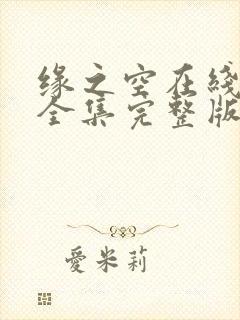 缘之空在线
全集完整版
愛米莉